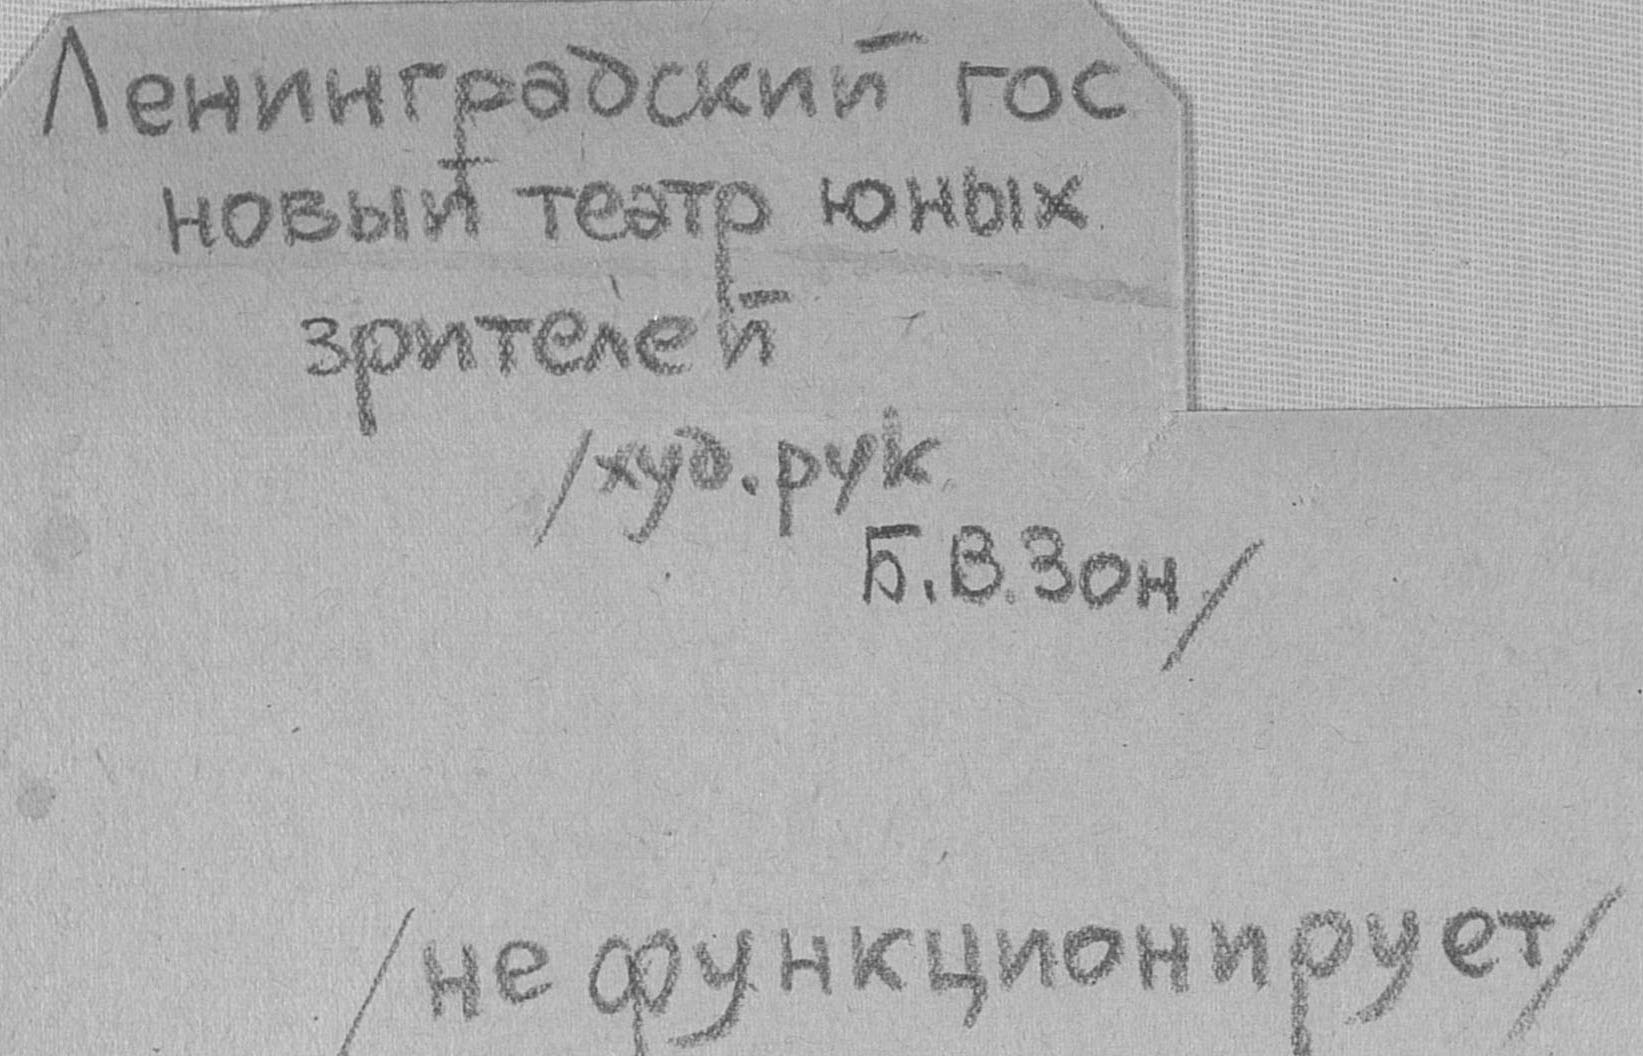 Ленинградский гос
новый театр юных
зрителей
/худ.рук
Б.В.Зон/
/не функционирует/